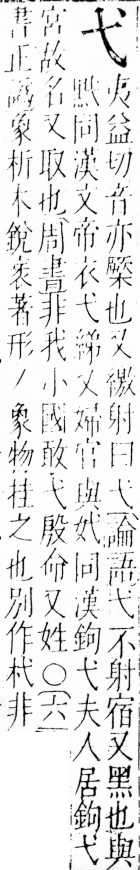 弋夷益切音亦橜也又繳射曰弋論語弋不射宿又黑也與
黓同漢文帝衣弋綈又婦官與㚤同漢鉤弋夫人居鉤弋
宮故名又取也周書非我小國敢弋殷命又姓○六
書正譌象析木銳衺著形丿象物挂之也別作杙非